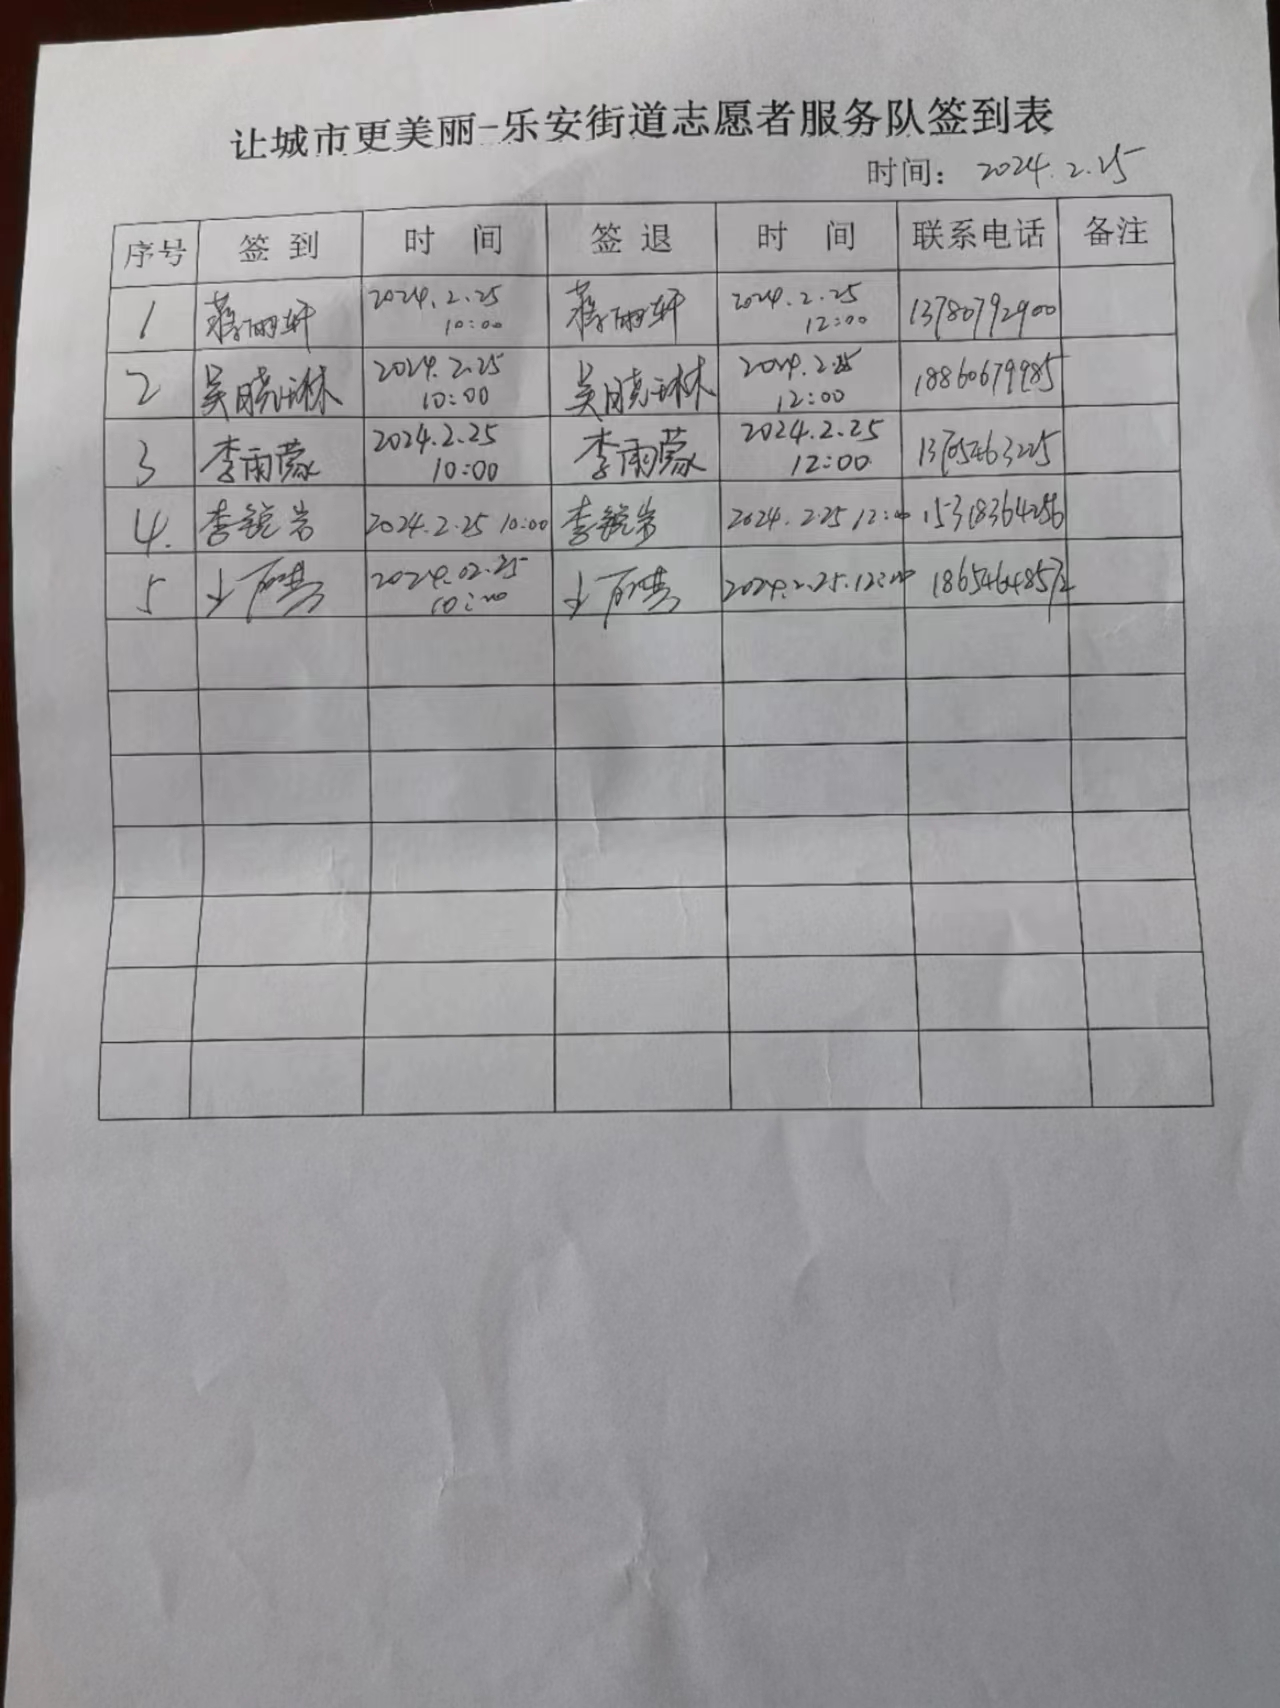 让城市更美丽-乐安街道志愿者服务队签到表
时间: 2024.2.25
序号 签到 时间 签退 时间 联系电话 备注
1 蒋雨轩 2024.2.25 10:00 蒋雨轩 2024.2.25 12:00 13780792900
2 吴晓琳 2024.2.25 10:00 吴晓琳 2024.2.25 12:00 18860679985
3 李雨蒙 2024.2.25 10:00 李雨蒙 2024.2.25 12:00 13705463225
4. 李锐岩 2024.2.25 10:00 李锐岩 2024.2.25 12:00 15318364256
5 2024.02.25 10:00 2024.2.25.12:00 18654648572